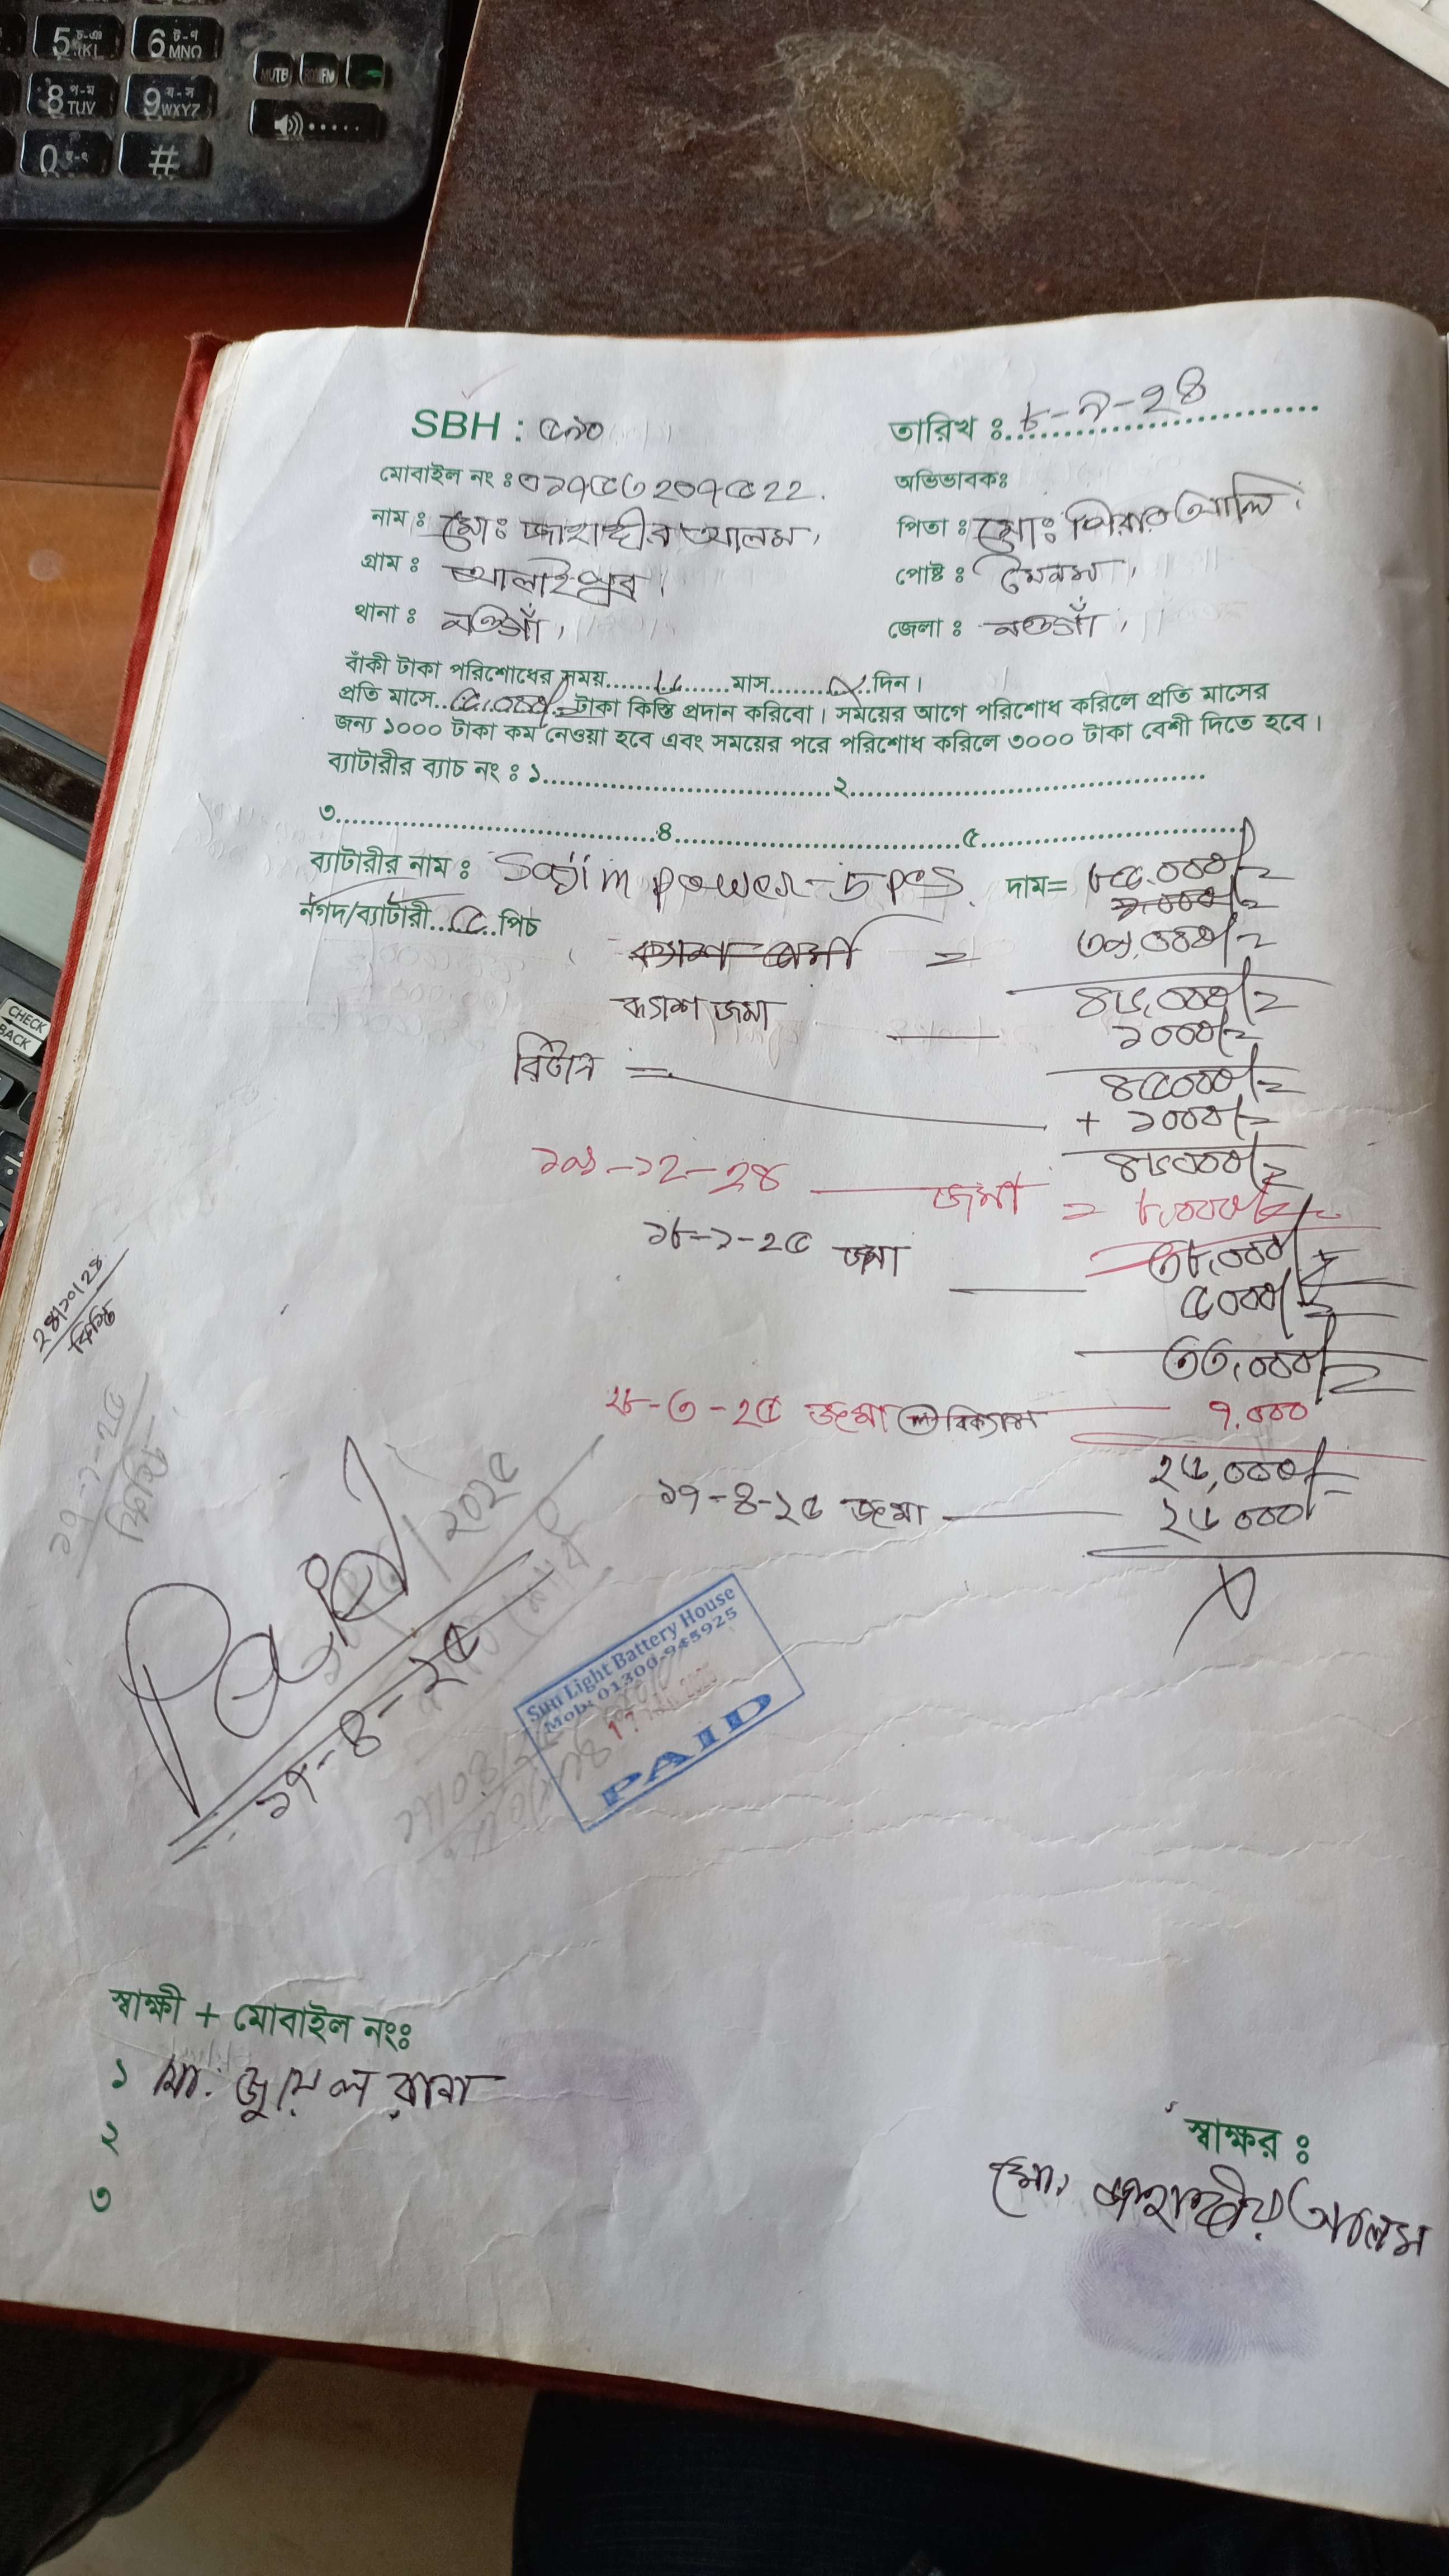 5 চ-ঞ JKL
6 ট-ণ MNO
MUTE
8 প-ম TUV
9 য-স WXYZ
0
#
CHECK
BACK
SBH : ৫৯০
তারিখ ঃ ৮-৭-২৪
মোবাইল নং ঃ ০১৭৫৩২০৭৫২২.
অভিভাবকঃ
নাম ঃ মোঃ জাহাঙ্গীর আলম,
পিতা ঃ মোঃ পিয়ার আলি।
গ্রাম ঃ
পোষ্ট ঃ মৈনম,
থানা ঃ নওগাঁ,
জেলা ঃ নওগাঁ,
বাঁকী টাকা পরিশোধের সময়..........মাস..........দিন।
প্রতি মাসে..৫,০০০/=টাকা কিস্তি প্রদান করিবো। সময়ের আগে পরিশোধ করিলে প্রতি মাসের
জন্য ১০০০ টাকা কম নেওয়া হবে এবং সময়ের পরে পরিশোধ করিলে ৩০০০ টাকা বেশী দিতে হবে।
ব্যাটারীর ব্যাচ নং ঃ ১..........২..........
৩..........৪..........৫..........
ব্যাটারীর নাম ঃ Sajim power-5pcs. দাম= ৮৫,০০০/=
নগদ/ব্যাটারী...৫...পিচ
= ৩৯,০০০/=
ক্যাশ জমা ৪৬,০০০/=
১০০০/=
রিটার্ন = ৪৫০০০/=
+ ১০০০/=
৪৬০০০/=
১৯-১২-২৪ জমা = ৮,০০০/=
৩৮,০০০/=
১৮-১-২৫ জমা ৫০০০/=
৩৩,০০০/=
২৮-৩-২৫ জমা বিকাশ ৭,০০০
২৬,০০০/=
১৭-৪-২৫ জমা ২৬০০০/
২৪/১০/২৪
কিস্তি
১৭-১-২৫
কিস্তি
Paid
১৭-৪-২৫
Sun Light Battery House
Mob: 01300-945925
PAID
স্বাক্ষী + মোবাইল নংঃ
১ মো. জুয়েল রানা
২
৩
স্বাক্ষর ঃ
মো. জাহাঙ্গীর আলম